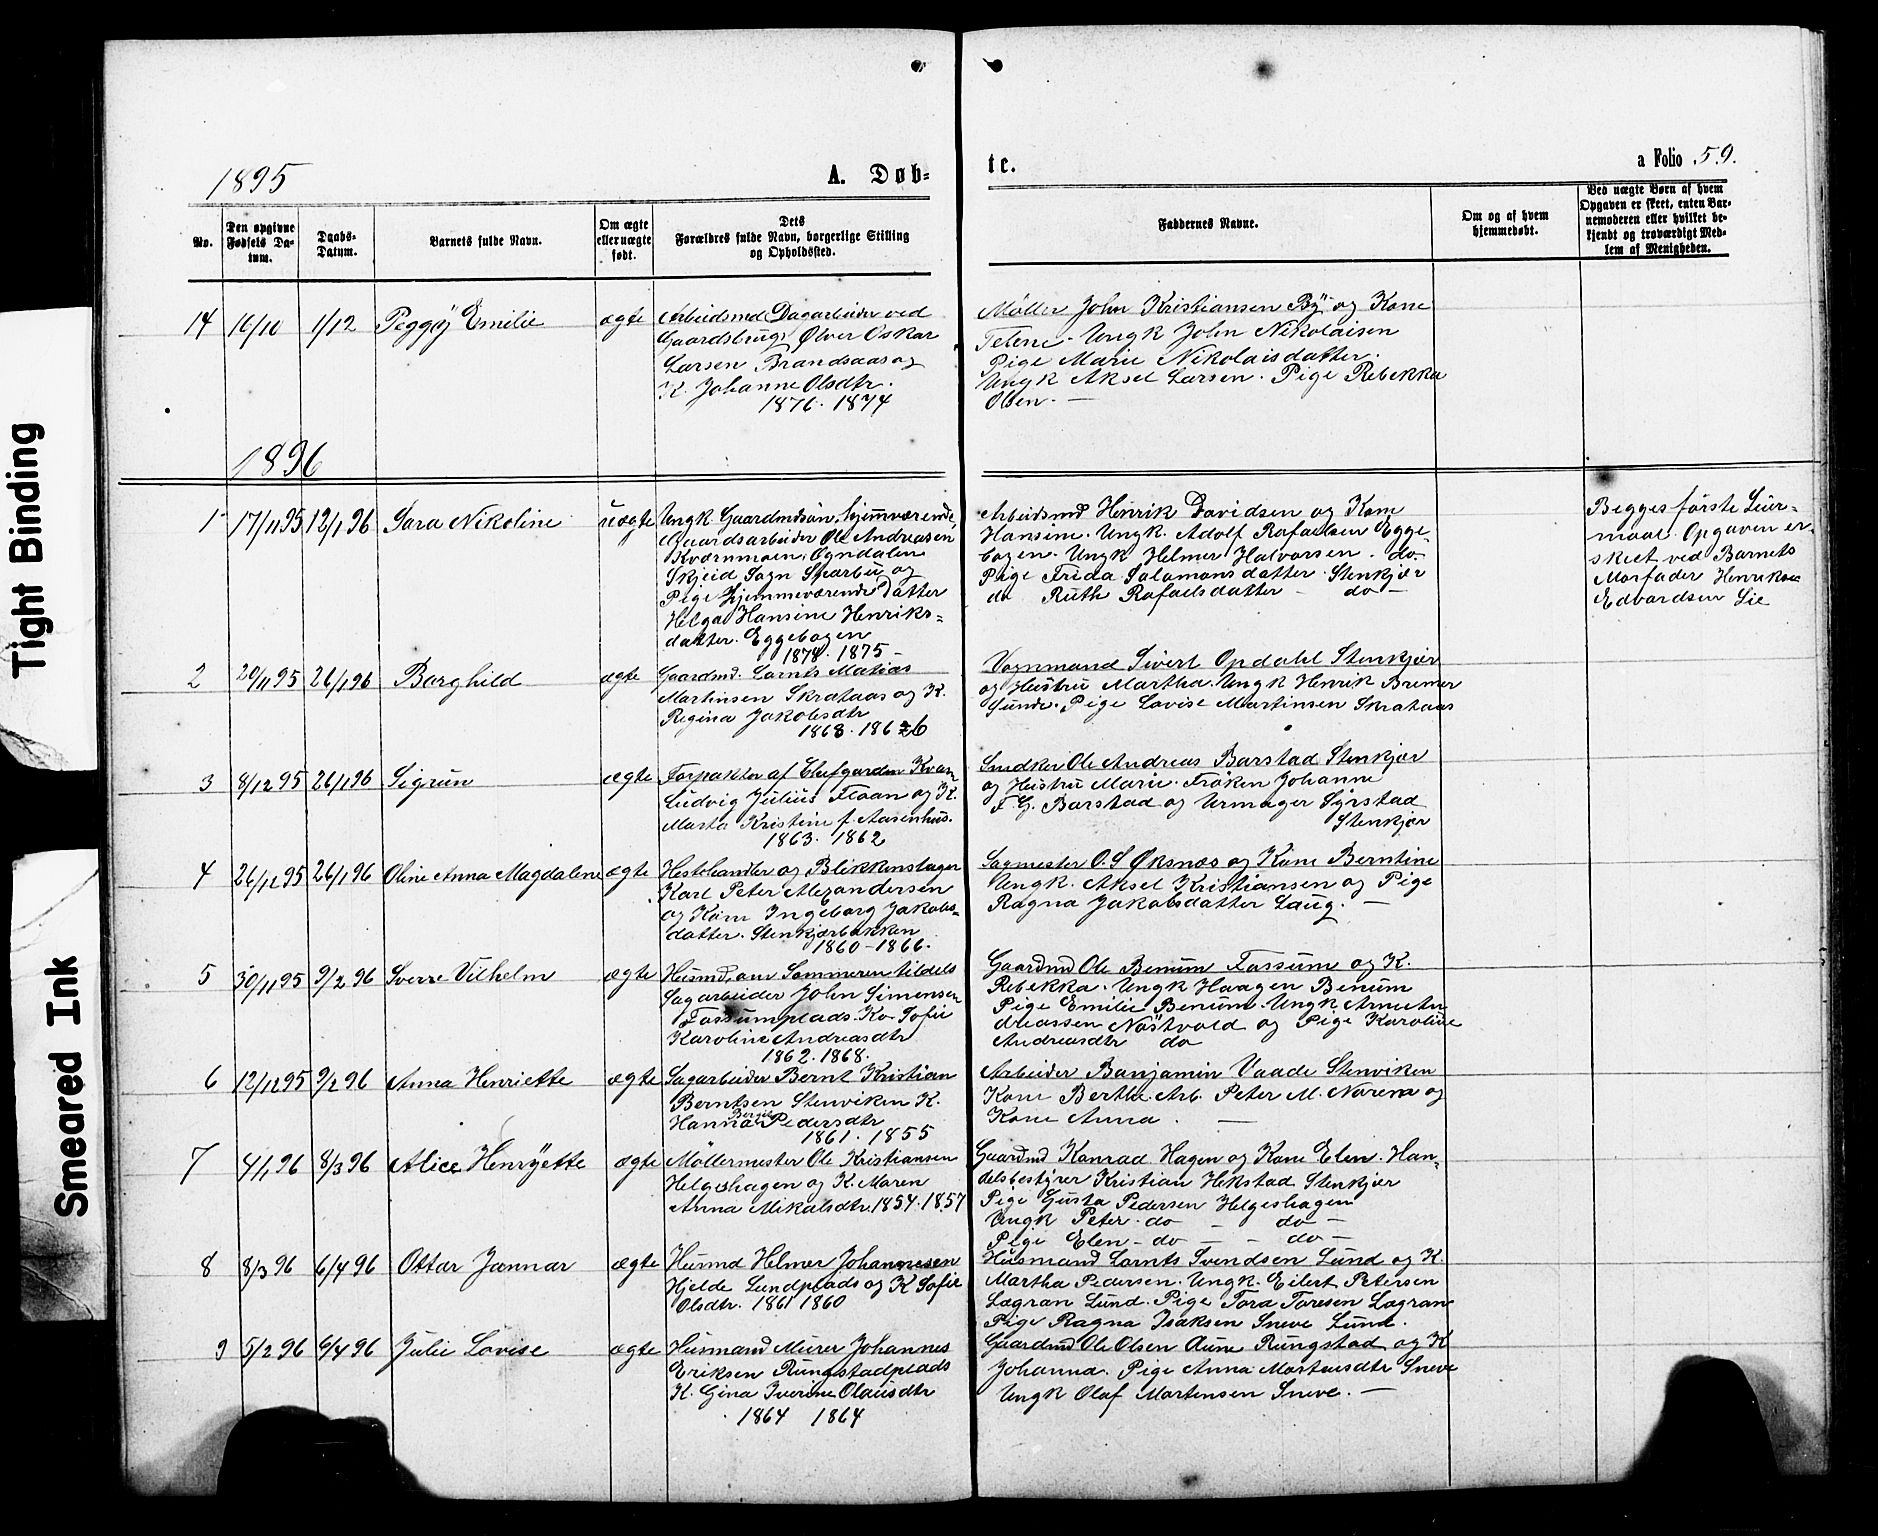 1895
A. Døb-
te.
a Folio 59.
No.
Den opgivne
Fødsels Da-
tum.
Daabs-
Datum.
Barnets fulde Navn.
Om ægte
eller uægte
født.
Dets
Forældres fulde Navn, borgerlige Stilling
og Opholdssted.
Faddernes Navne.
Om og af hvem
hjemmedøbt.
Ved uægte Børn af hvem
Opgaven er skeet, enten Bar-
nemoderen eller hvilket be-
kjendt og troværdigt Med-
lem af Menigheden.
14 16/10 1/12 Peggy Emilie ægte
Arbeidsmd Dagarbeider ved
Gaardsbrug Ølver Oskar
Larsen Brandsaas og
K. Johanne Olsdtr.
1876. 1874
Møller John Kristiansen By og Kone
Ungk John Nikolaisen
Pige Marie Nikolaisdatter.
Ungk Aksel Larsen. Pige Rebekka
Olsen. —
1896
1 17/11 95 12/1 96 Sara Nikoline uægte
Ungk Gaardmdsøn, hjemværende,
Gaardsarbeider Ole Andreasen
Kværnmoen, Ogndalen
Skjeid Sogn Sparbu og
Pige hjemmeværende Datter
Helga Hansine Henriks-
datter. Eggebogen
1878. 1875 -
Arbeidsmd Henrik Davidsen og Kone
Hansine. Ungk. Adolf Rafaelsen Egge-
bogen. Ungk Helmer Halvorsen. do.
Pige Frida Salamonsdatter. Stenkjær
do Ruth Rafaelsdatter - do -
Begges første Leier-
maal. Opgaven er
skeet ved Barnets
Morfader Henrik
Edvardsen Lie
2 29/11 95 26/1 96 Borghild ægte
Gaardmd. Lornts Matias
Martinsen Skrataas og K.
Regina Jakobsdtr
1868. 1866
Vognmand Sivert Opdahl Stenkjær
og Hustru Martha. Ungk Henrik Bremer
Sunde. Pige Lovise Martinsen Skrataas
3 8/12 95 26/1 96 Sigrun ægte
Forpakter af Chefgarden Kvam
Ludvig Julius Floan og K.
Marta Kristine f. Aasenhus.
1863. 1862
Snedker Ole Andreas Barstad Stenkjær
og Hustru Marie. Frøken Johanne
F. G. Barstad og Urmager Syrstad
Stenkjær
4 26/12 95 26/1 96 Oline Anna Magdalene ægte
Hestehandler og Blikkenslager
Karl Peter Alexandersen
og Kone Ingeborg Jakobs-
datter. Stenkjærbakken
1860-1866.
Sagmester O. S Øksnæs og Kone Berntine
Ungk. Aksel Kristiansen og Pige
Ragna Jakobsdatter Laug. —
5 30/11 95 9/2 96 Sverre Vilhelm ægte
Husmd, om Sommeren tildels
Sagarbeider John Simonsen
Fossumplads. Ko Sofie
Karoline Andreasdtr
1862. 1868.
Gaardmd Ole Benum Fossum og K.
Rebekka. Ungk Haagen Benum
Pige Emilie Benum. Ungk Arne An
dreassen Nøstvold og Pige Karoline
Andreasdtr do
6 12/12 95 9/2 96 Anna Henriette ægte
Sagarbeider Bernt Kristian
Berntsen Stenviken K.
Hanna Bergit Pedersdtr
1861. 1855
Arbeider Banjamin Vaade Stenviken
Kone Berthe. Arb. Peter M. Norem og
Kone Anna. —
7 4/1 96 8/3 96 Alice Henryette ægte
Møllermester Ole Kristiansen
Helgeshagen og K. Maren
Anna Mikalsdtr. 1854. 1857
Gaardmd Konrad Hagen og Kone Elen. Han-
delsbestyrer Kristian Hekstad Stenkjær
Pige Gusta Pedersen Helgeshagen
Ungk Peter - do - do -
Pige Elen - do - - do -
8 8/3 96 6/4 96 Ottar Jannar ægte
Husmd Helmer Johannesen
Hjelde Lundplads og K Sofie
Olsdtr. 1861 1860
Husmand Lornts Svendsen Lund og K.
Martha Pedersen. Ungk. Eilert Petersen
Lægran Lund. Pige Tora Toresen Lægran
Pige Ragna Isaksen Sneve Lund.
9 5/2 96 6/4 96 Julie Lovise ægte
Husmand Murer Johannes
Eriksen Rungstadplads
K. Gina Iverine Olausdtr
1864 1864
Gaardmd Ole Olsen Aune Rungstad og K
Johanna. Pige Anna Martensdtr Sneve
Ungk Olaf Martensen Sneve. —
Tight Binding
Smeared Ink